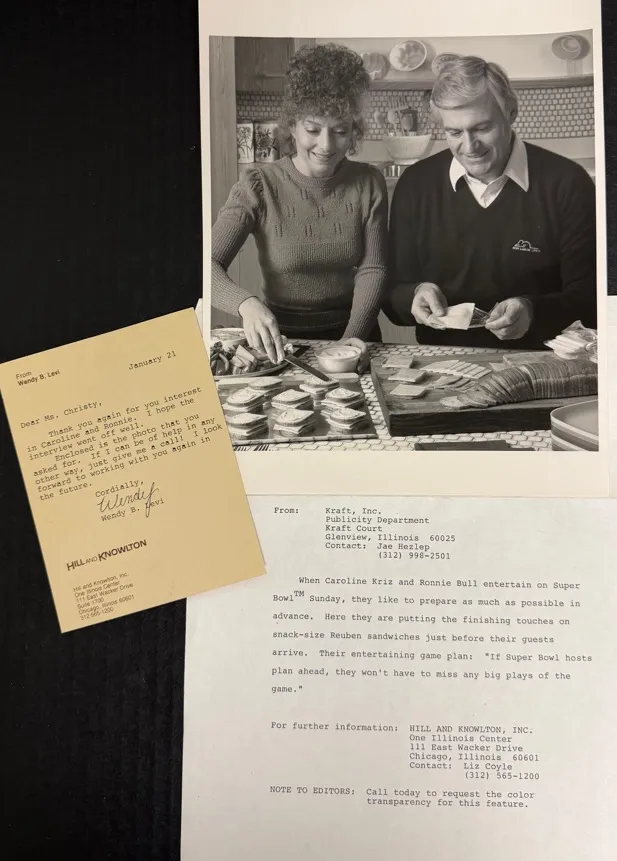 From
Wendy B. Levi
January 21
Dear Ms. Christy,
Thank you again for you interest
in Caroline and Ronnie. I hope the
interview went off well.
Enclosed is the photo that you
asked for. If I can be of help in any
other way, just give me a call! I look
forward to working with you again in
the future.
Cordially,
Wendy
Wendy B. Levi
HILL AND KNOWLTON
Hill and Knowlton, Inc.
One Illinois Center
111 East Wacker Drive
Suite 1700
Chicago, Illinois 60601
312-565-1200
From: Kraft, Inc.
Publicity Department
Kraft Court
Glenview, Illinois 60025
Contact: Jae Hezlep
(312) 998-2501
When Caroline Kriz and Ronnie Bull entertain on Super
Bowl™ Sunday, they like to prepare as much as possible in
advance. Here they are putting the finishing touches on
snack-size Reuben sandwiches just before their guests
arrive. Their entertaining game plan: "If Super Bowl hosts
plan ahead, they won't have to miss any big plays of the
game."
For further information: HILL AND KNOWLTON, INC.
One Illinois Center
111 East Wacker Drive
Chicago, Illinois 60601
Contact: Liz Coyle
(312) 565-1200
NOTE TO EDITORS: Call today to request the color
transparency for this feature.